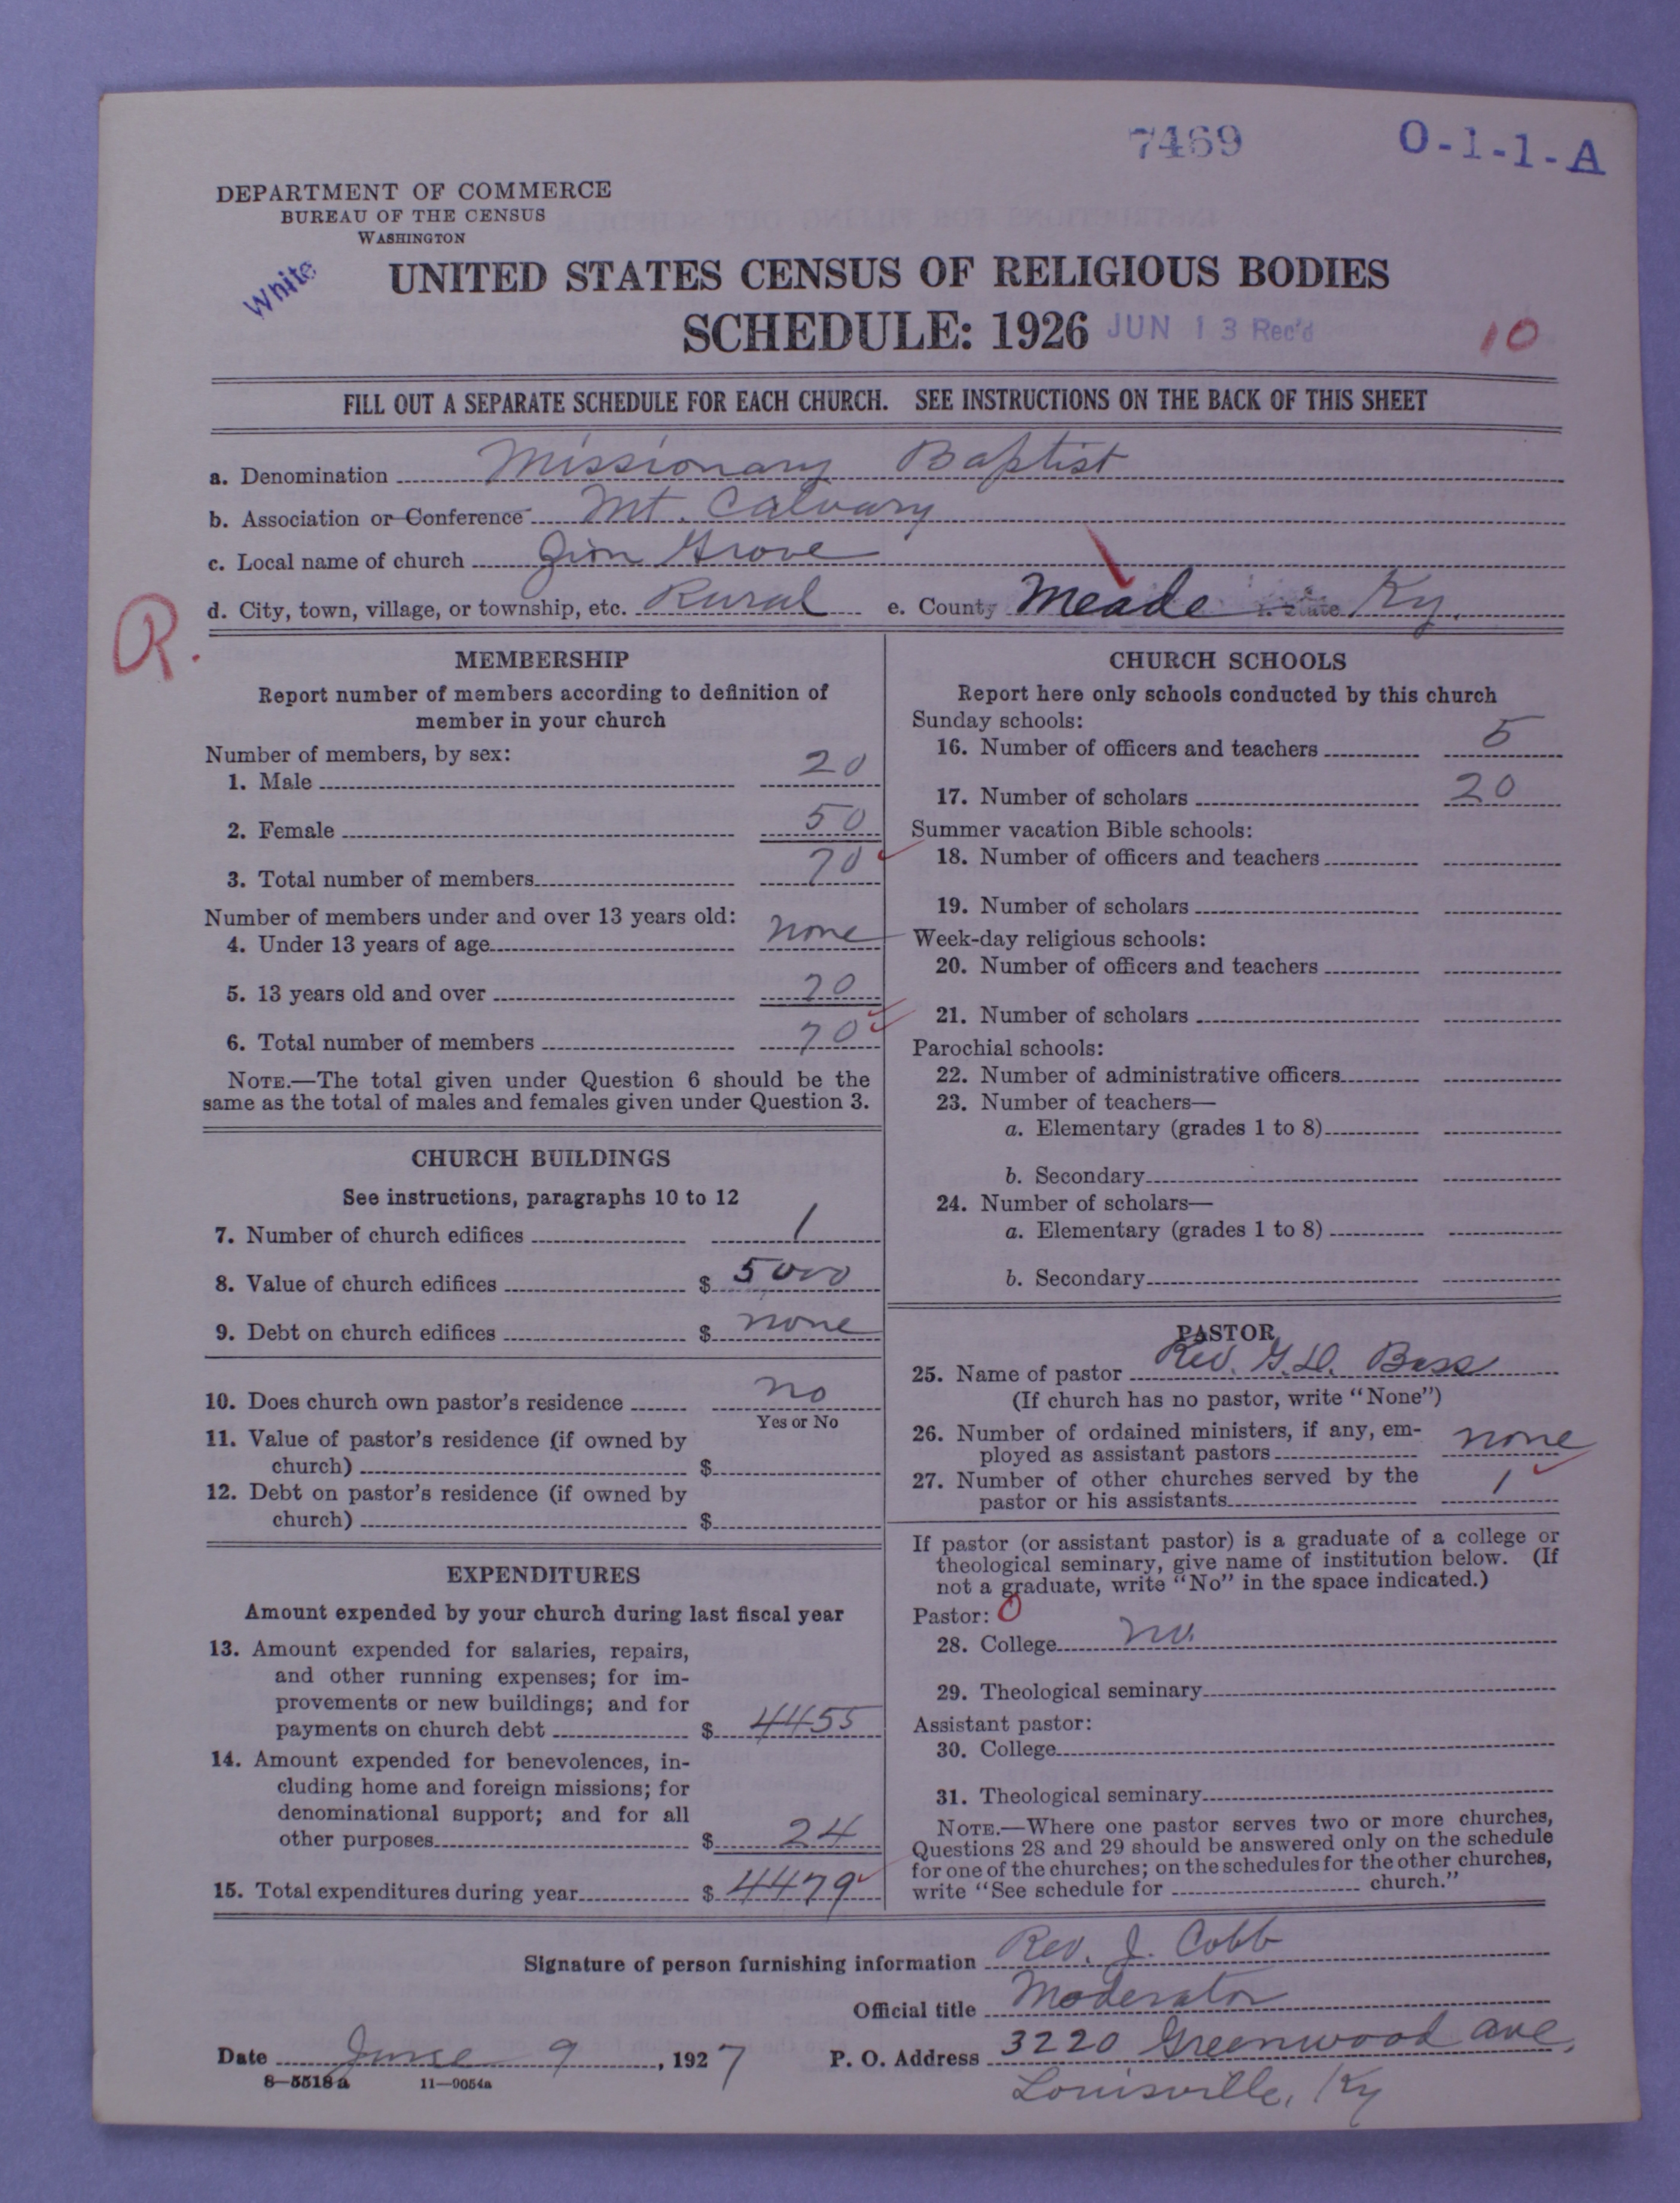 7469
O-1-1-A
DEPARTMENT OF COMMERCE
BUREAU OF THE CENSUS
WASHINGTON
White
UNITED STATES CENSUS OF RELIGIOUS BODIES
SCHEDULE: 1926 JUN 13 Rec'd
10
FILL OUT A SEPARATE SCHEDULE FOR EACH CHURCH. SEE INSTRUCTIONS ON THE BACK OF THIS SHEET
a. Denomination Missionary Baptist
b. Association or Conference Mt. Calvary
c. Local name of church Zion Grove
d. City, town, village, or township, etc. Rural e. County Meade f. State Ky.
R.
MEMBERSHIP
Report number of members according to definition of
member in your church
Number of members, by sex:
1. Male 20
2. Female 50
3. Total number of members 70
Number of members under and over 13 years old:
4. Under 13 years of age none
5. 13 years old and over 70
6. Total number of members 70
NOTE.—The total given under Question 6 should be the
same as the total of males and females given under Question 3.
CHURCH BUILDINGS
See instructions, paragraphs 10 to 12
7. Number of church edifices 1
8. Value of church edifices $ 5000
9. Debt on church edifices $ none
10. Does church own pastor's residence no
Yes or No
11. Value of pastor's residence (if owned by
church) $
12. Debt on pastor's residence (if owned by
church) $
EXPENDITURES
Amount expended by your church during last fiscal year
13. Amount expended for salaries, repairs,
and other running expenses; for im-
provements or new buildings; and for
payments on church debt $ 4455
14. Amount expended for benevolences, in-
cluding home and foreign missions; for
denominational support; and for all
other purposes $ 24
15. Total expenditures during year $ 4479
CHURCH SCHOOLS
Report here only schools conducted by this church
Sunday schools:
16. Number of officers and teachers 5
17. Number of scholars 20
Summer vacation Bible schools:
18. Number of officers and teachers
19. Number of scholars
Week-day religious schools:
20. Number of officers and teachers
21. Number of scholars
Parochial schools:
22. Number of administrative officers
23. Number of teachers—
a. Elementary (grades 1 to 8)
b. Secondary
24. Number of scholars—
a. Elementary (grades 1 to 8)
b. Secondary
PASTOR
25. Name of pastor Rev. G. D. Bass
(If church has no pastor, write "None")
26. Number of ordained ministers, if any, em-
ployed as assistant pastors none
27. Number of other churches served by the
pastor or his assistants 1
If pastor (or assistant pastor) is a graduate of a college or
theological seminary, give name of institution below. (If
not a graduate, write "No" in the space indicated.)
Pastor: 0
28. College no.
29. Theological seminary
Assistant pastor:
30. College
31. Theological seminary
NOTE.—Where one pastor serves two or more churches,
Questions 28 and 29 should be answered only on the schedule
for one of the churches; on the schedules for the other churches,
write "See schedule for church."
Signature of person furnishing information Rev. J. Cobb
Official title Moderator
Date June 9, 1927 P. O. Address 3220 Greenwood ave,
8—5518a 11—9054a
Louisville, Ky